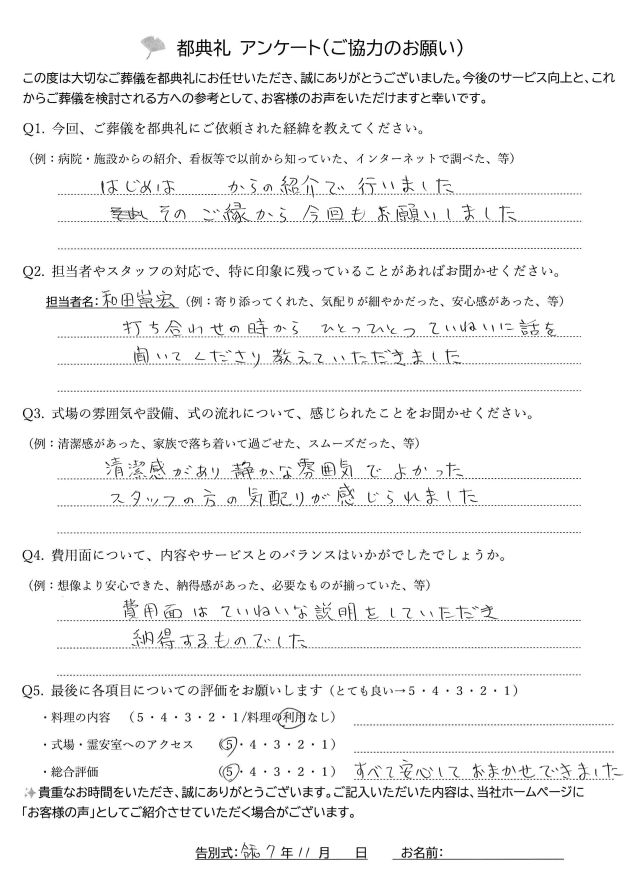 都典礼 アンケート（ご協力のお願い）
この度は大切なご葬儀を都典礼にお任せいただき、誠にありがとうございました。今後のサービス向上と、これ
からご葬儀を検討される方への参考として、お客様のお声をいただけますと幸いです。
Q1. 今回、ご葬儀を都典礼にご依頼された経緯を教えてください。
（例：病院・施設からの紹介、看板等で以前から知っていた、インターネットで調べた、等）
はじめは からの紹介で 行いました
その ご縁から 今回も お願いしました
Q2. 担当者やスタッフの対応で、特に印象に残っていることがあればお聞かせください。
担当者名：和田崇宏（例：寄り添ってくれた、気配りが細やかだった、安心感があった、等）
打ち合わせの時から ひとつひとつ ていねいに話を
聞いてくださり 教えていただきました
Q3. 式場の雰囲気や設備、式の流れについて、感じられたことをお聞かせください。
（例：清潔感があった、家族で落ち着いて過ごせた、スムーズだった、等）
清潔感があり 静かな雰囲気で よかった
スタッフの方の気配りが感じられました
Q4. 費用面について、内容やサービスとのバランスはいかがでしたでしょうか。
（例：想像より安心できた、納得感があった、必要なものが揃っていた、等）
費用面は ていねいな説明をしていただき
納得するものでした
Q5. 最後に各項目についての評価をお願いします（とても良い→５・４・３・２・１）
・料理の内容 （５・４・３・２・１/料理の利用なし）
・式場・霊安室へのアクセス （５・４・３・２・１）
・総合評価 （５・４・３・２・１） すべて安心して おまかせできました
貴重なお時間をいただき、誠にありがとうございます。ご記入いただいた内容は、当社ホームページに
「お客様の声」としてご紹介させていただく場合がございます。
告別式：令和 7 年 11 月 日 お名前：